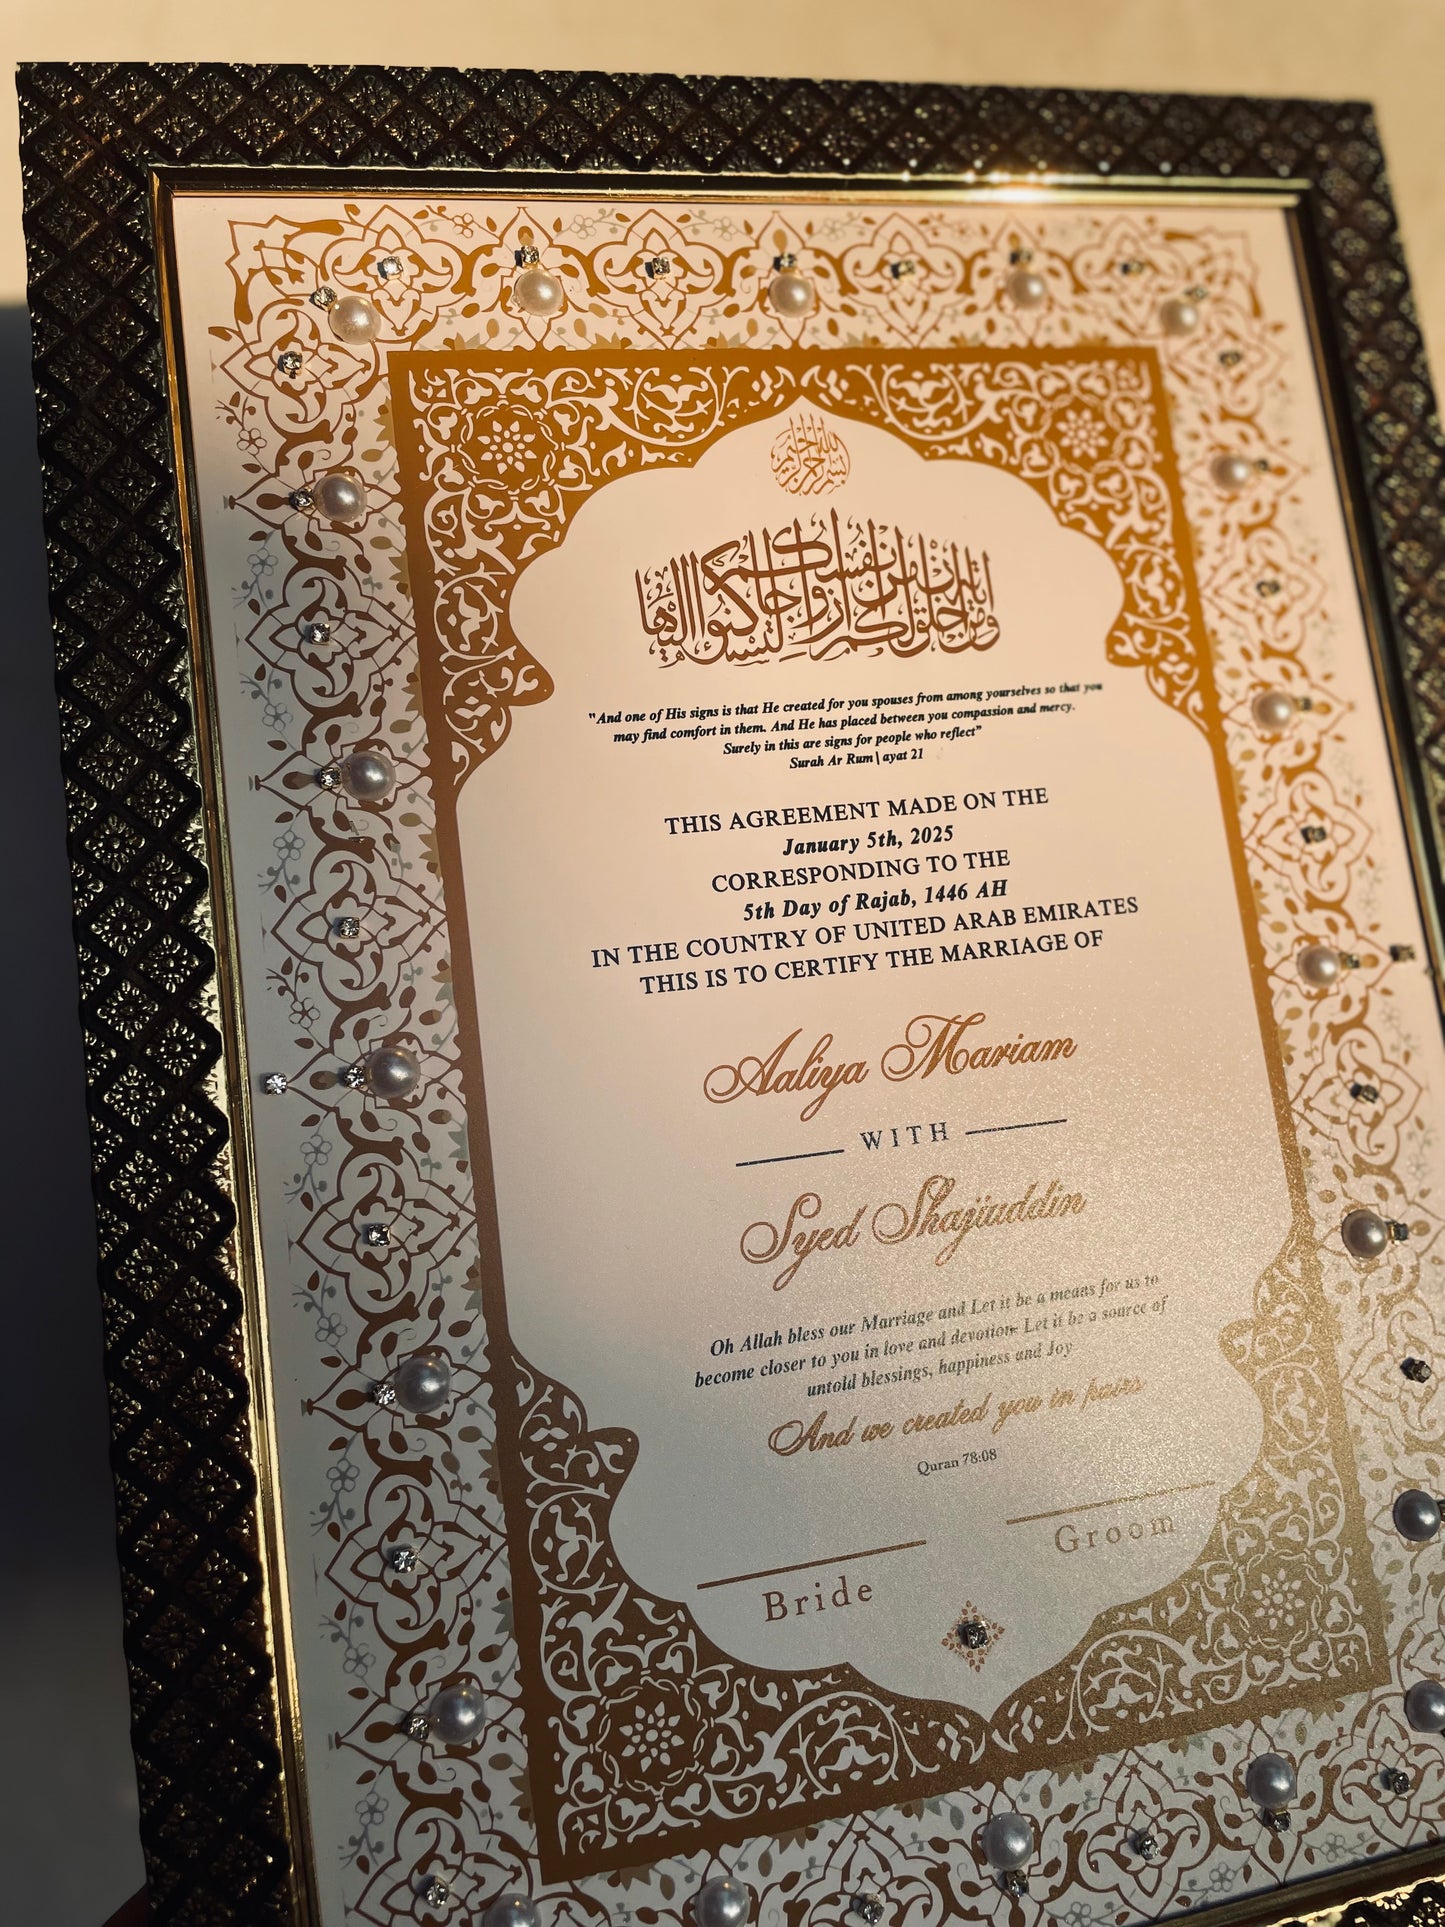 بسم الله الرحمن الرحيم
ومن آياته أن خلق لكم من أنفسكم أزواجا لتسكنوا إليها
"And one of His signs is that He created for you spouses from among yourselves so that you
may find comfort in them. And He has placed between you compassion and mercy.
Surely in this are signs for people who reflect"
Surah Ar Rum | ayat 21
THIS AGREEMENT MADE ON THE
January 5th, 2025
CORRESPONDING TO THE
5th Day of Rajab, 1446 AH
IN THE COUNTRY OF UNITED ARAB EMIRATES
THIS IS TO CERTIFY THE MARRIAGE OF
Aaliya Mariam
WITH
Syed Shajiuddin
Oh Allah bless our Marriage and Let it be a means for us to
become closer to you in love and devotion- Let it be a source of
untold blessings, happiness and Joy
And we created you in pairs
Quran 78:08
Bride
Groom